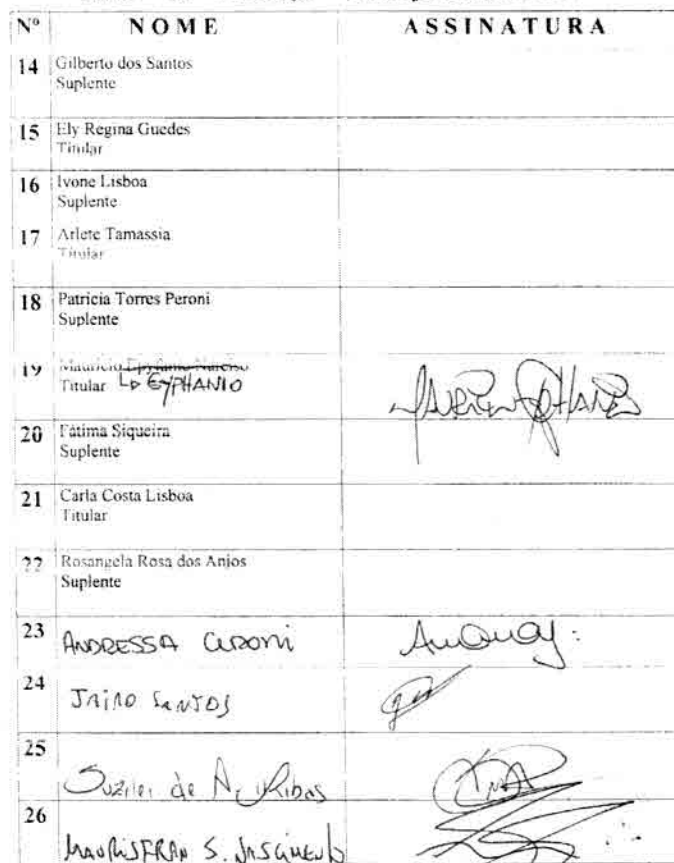 Nº NOME ASSINATURA
14 Gilberto dos Santos
Suplente
15 Ely Regina Guedes
Titular
16 Ivone Lisboa
Suplente
17 Arlete Tamassia
Titular
18 Patricia Torres Peroni
Suplente
19 Mauricio Epyfanio Narciso
Titular EYPHANIO
20 Fátima Siqueira
Suplente
21 Carla Costa Lisboa
Titular
22 Rosangela Rosa dos Anjos
Suplente
23 ANDRESSA
24 JAIRO SANTOS
25 de Ribas
26 S. NASCIMENTO